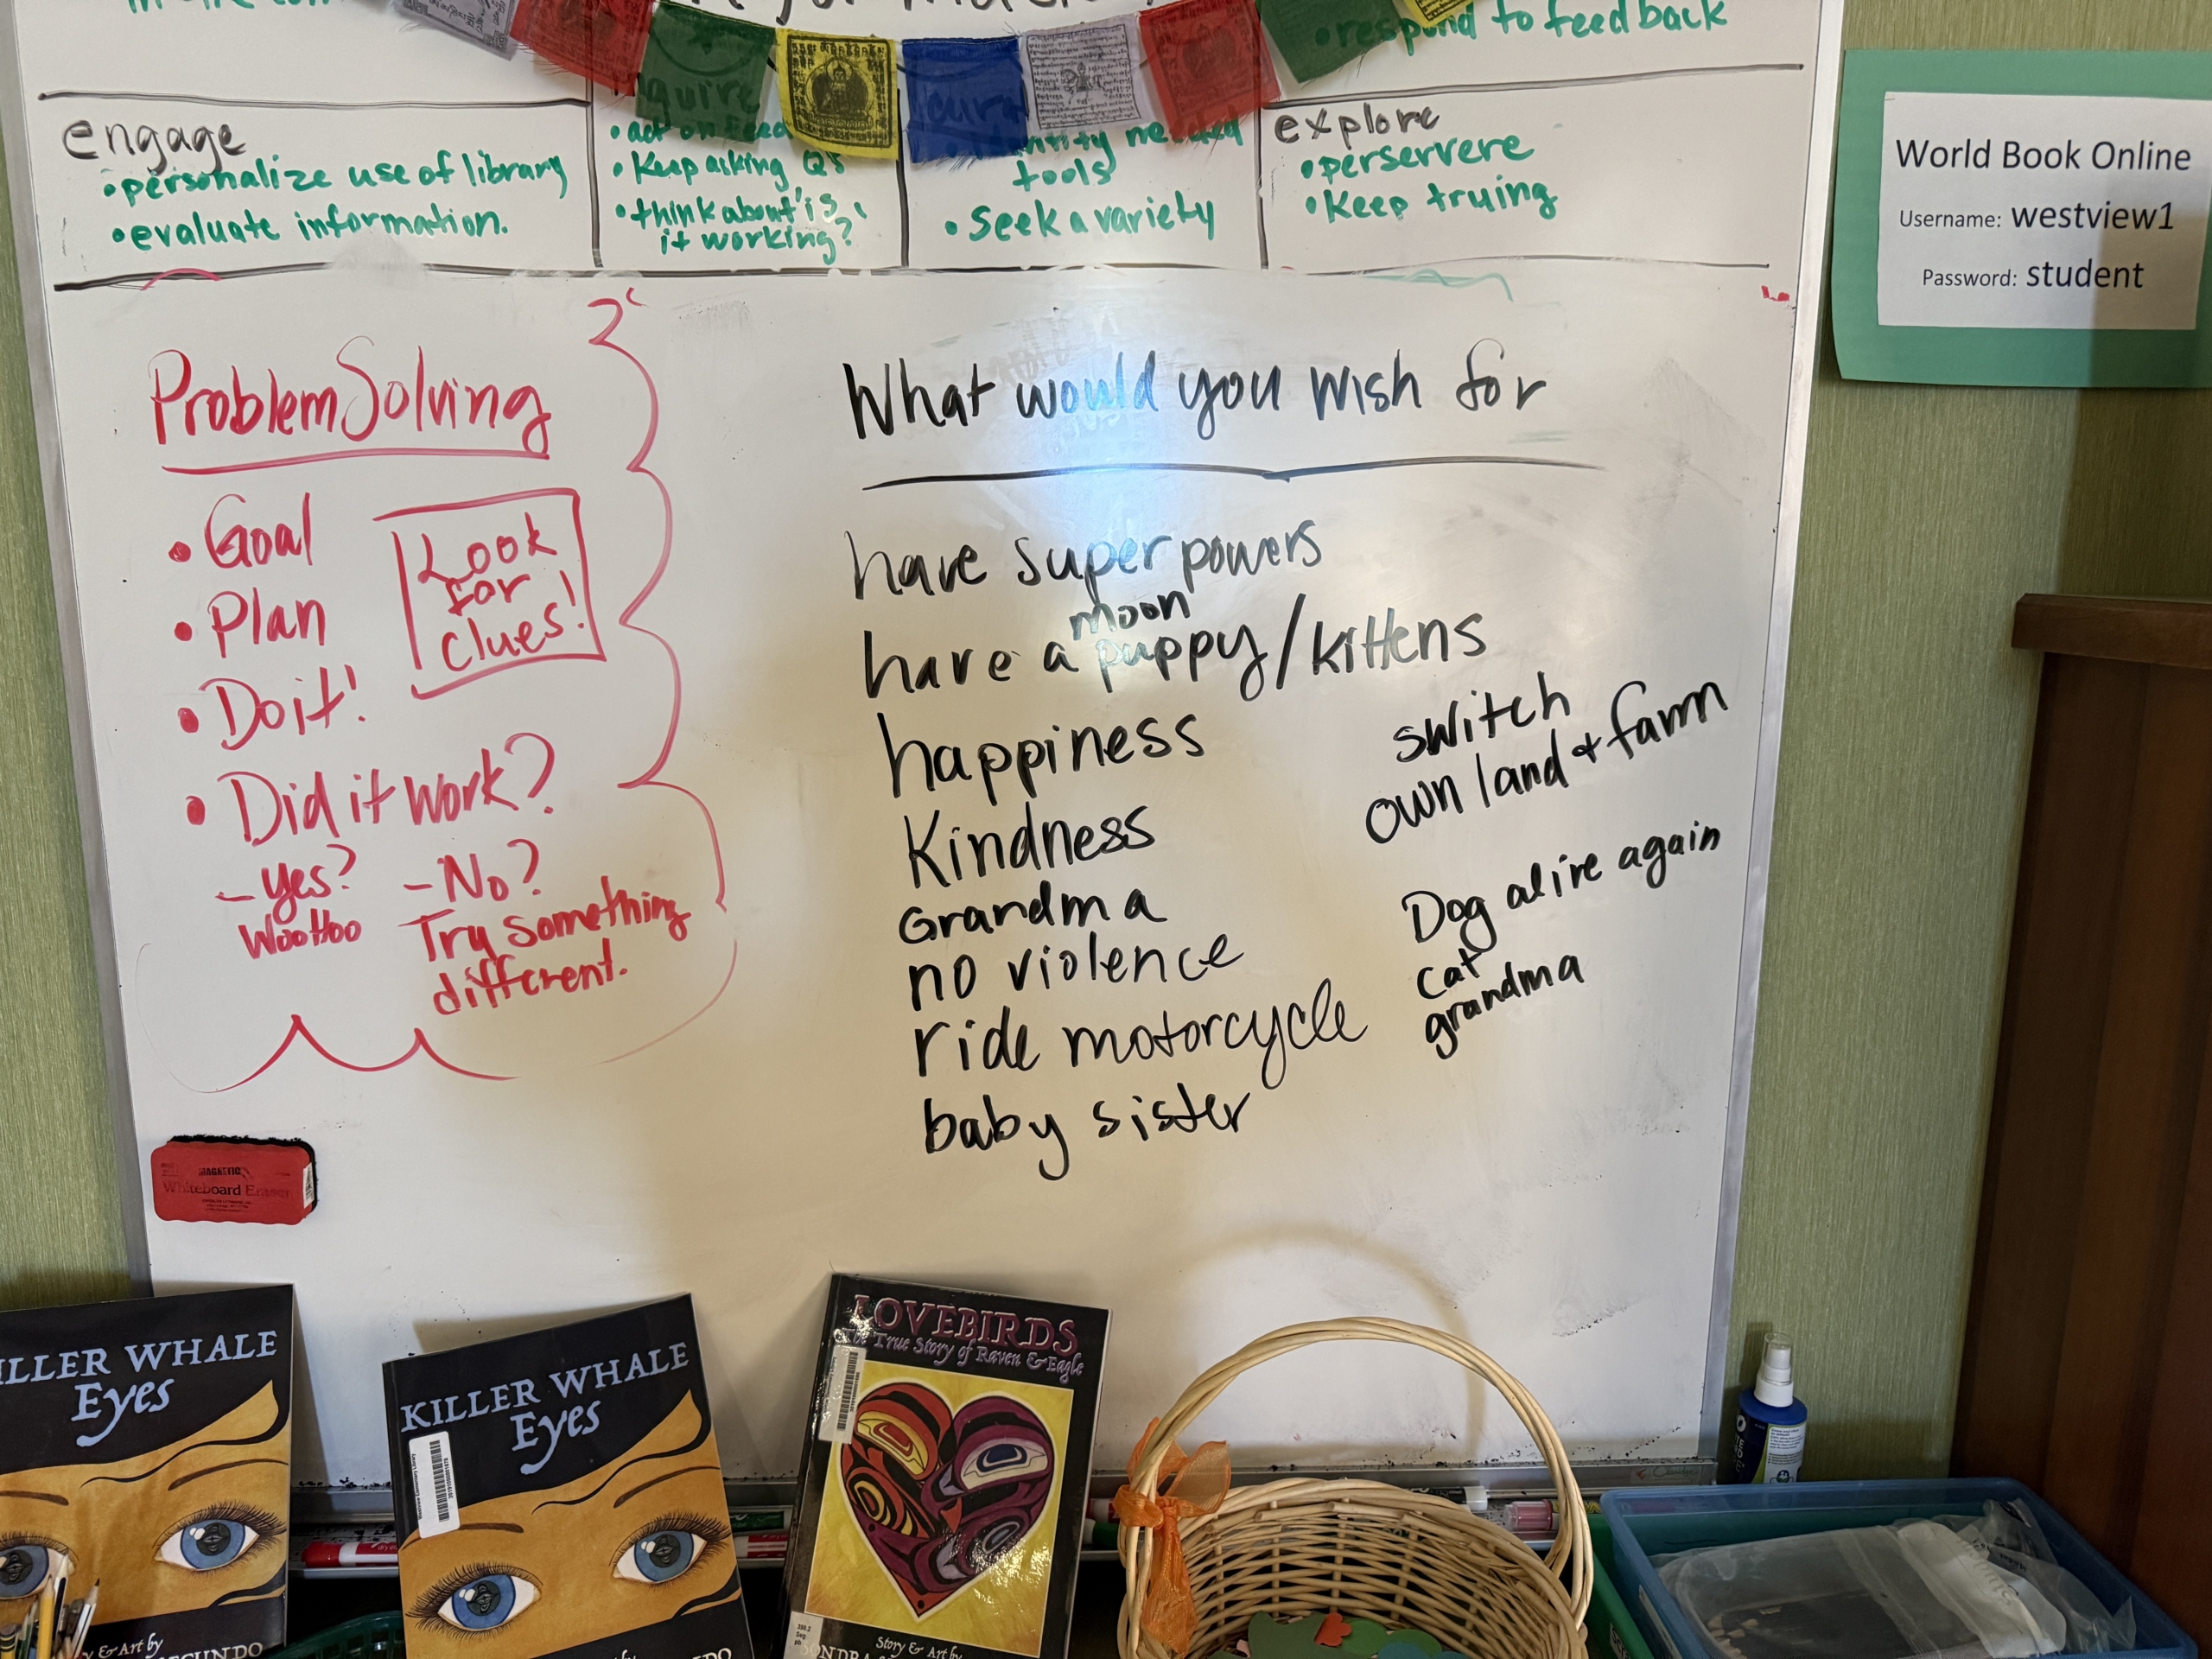 respond to feedback
engage
• personalize use of library
• evaluate information.
• Keep asking Q's
• think about 'is
it working?'
tools
• Seek a variety
explore
• perservere
• Keep truing
World Book Online
Username: westview1
Password: student
Problem Solving
• Goal
• Plan
• Do it!
• Did it work?
- yes?
WooHoo
- No?
Try something
different.
Look
for
clues!
What would you wish for
have super powers
moon
have a puppy/kittens
happiness
Kindness
Grandma
no violence
ride motorcycle
baby sister
switch
own land + farm
Dog alive again
cat
grandma
MAGNETIC
Whiteboard Eraser
ILLER WHALE
Eyes
& Art by
KILLER WHALE
Eyes
LOVEBIRDS
The True Story of Raven & Eagle
Story & Art by